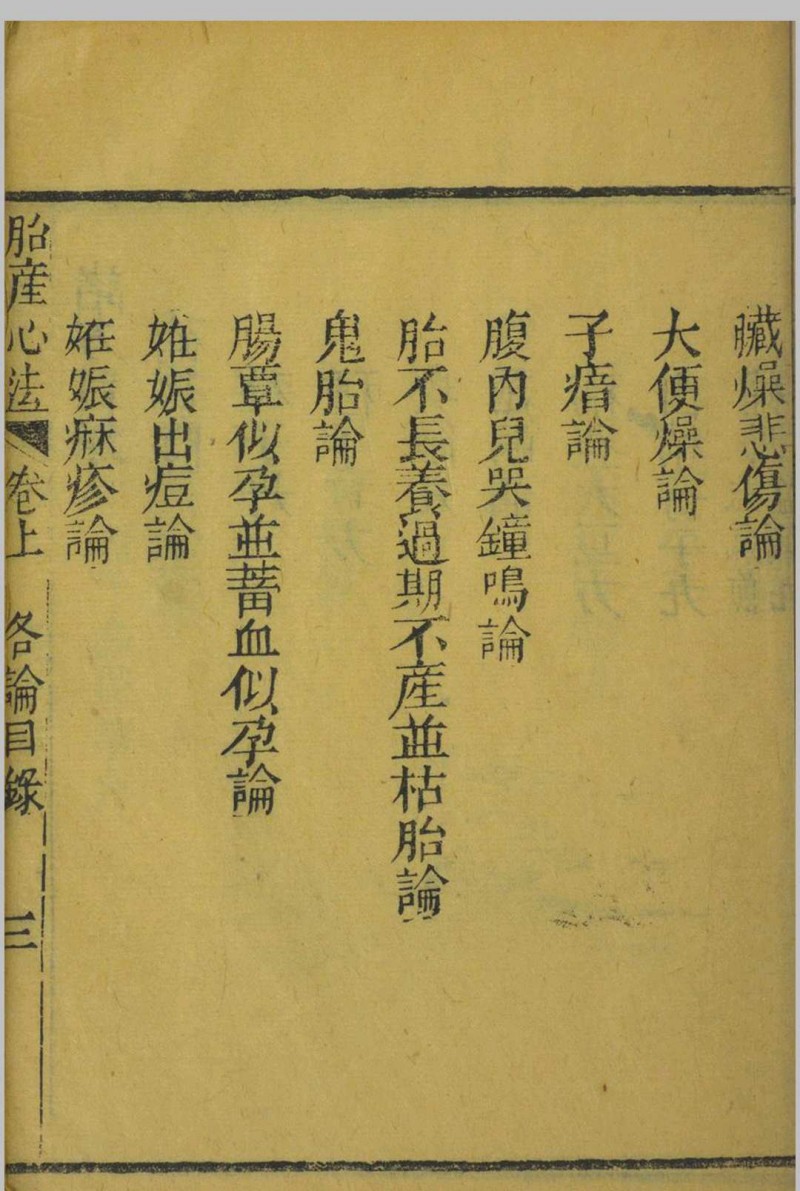 臟燥悲傷論
大便燥論
子瘖論
腹內兒哭鐘鳴論
胎不長養過期不産並枯胎論
鬼胎論
腸覃似孕並蓄血似孕論
姙娠出痘論
姙娠痳疹論
胎産心法 卷上 各論目錄 三